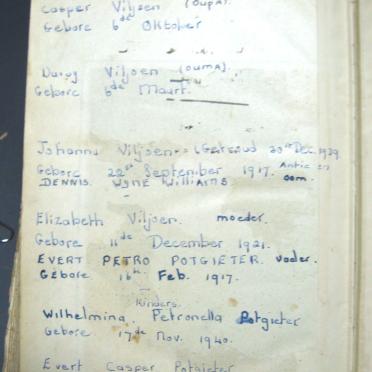 Casper Viljoen (OUPA).
Gebore 6de Oktober
Viljoen (OUMA).
Gebore 6de Maart.
Johanna Viljoen (Getroud 30ste Dec. 1939
Gebore 22ste September 1917. Antie en
DENNIS. WYNE WILLIAMS oom.
Elizabeth Viljoen. moeder.
Gebore 11de December 1921.
EVERT PETRO POTGIETER. vader.
Gebore 16th Feb. 1917.
Kinders.
Wilhelmina Petronella Potgieter
Gebore 17de Nov. 1940.
Evert Casper Potgieter